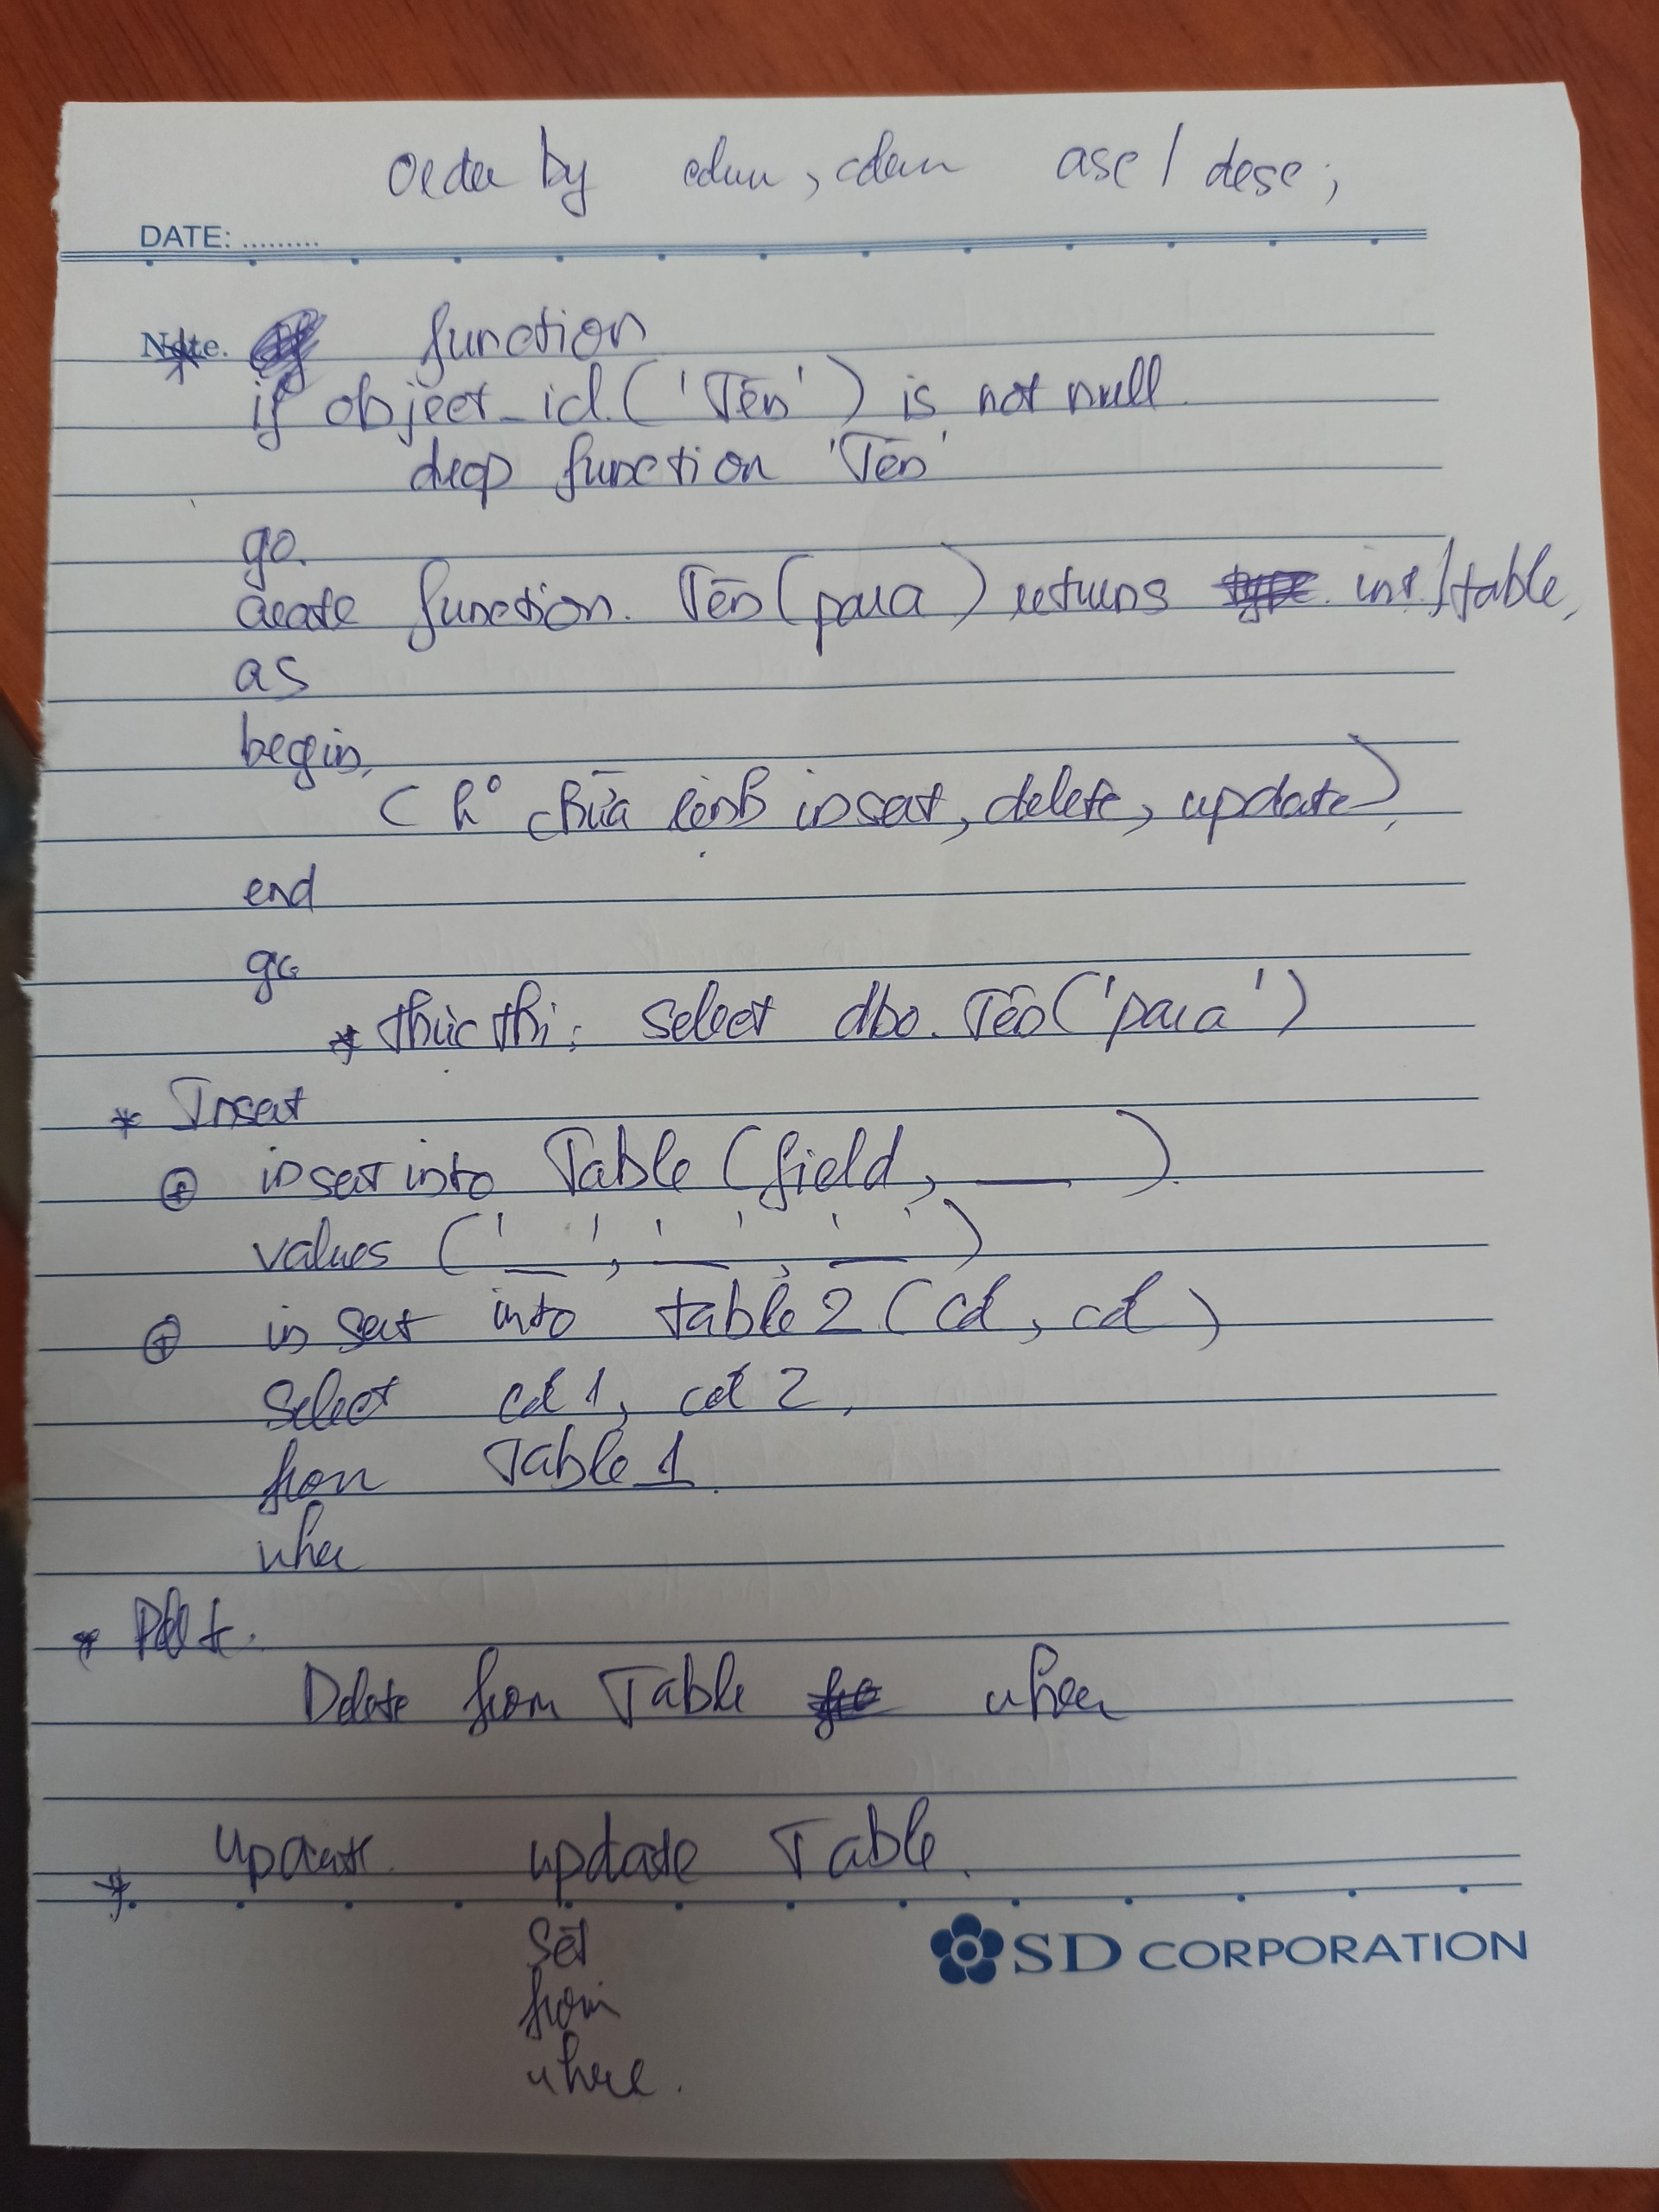 Order by colum, colum asc / desc;
DATE: .........
Note.
* function
if object_id ('Tên') is not null
drop function 'Tên'
go
create function Tên (para) returns int / table
as
begin
( k° chứa lệnh insert, delete, update)
end
go
* thực thi: select dbo. Tên ('para')
* Insert
⊕ insert into Table (field, ___ )
values ('__', '__', '__')
⊕ insert into table 2 (col, col)
select col 1, col 2
from Table 1
where
* Delete
Delete from Table where
* Update update Table
set
from
where.
SD CORPORATION